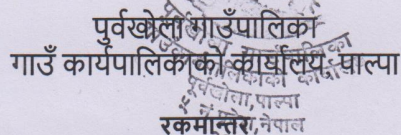 पुर्वखोला गाउँपालिका
गाउँ कार्यपालिकाको कार्यालय, पाल्पा
पूर्वखोला, पाल्पा
नेपाल
रकमान्तर